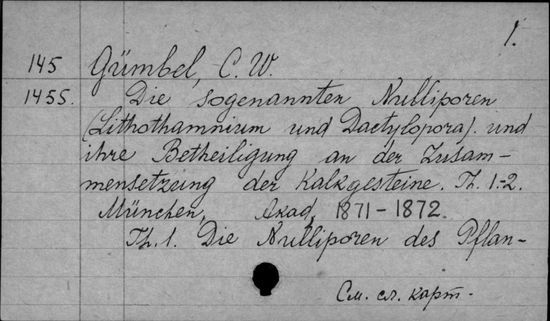 1.
145 Gümbel, C. W.
1455. Die sogenannten Nulliporen
(Lithothamnium und Dactylopora). und
ihre Betheiligung an der Zusam-
mensetzung der Kalkgesteine. Th. 1.-2.
München, Akad, 1871-1872.
Th. 1. Die Nulliporen des Pflan-
См. сл. карт.